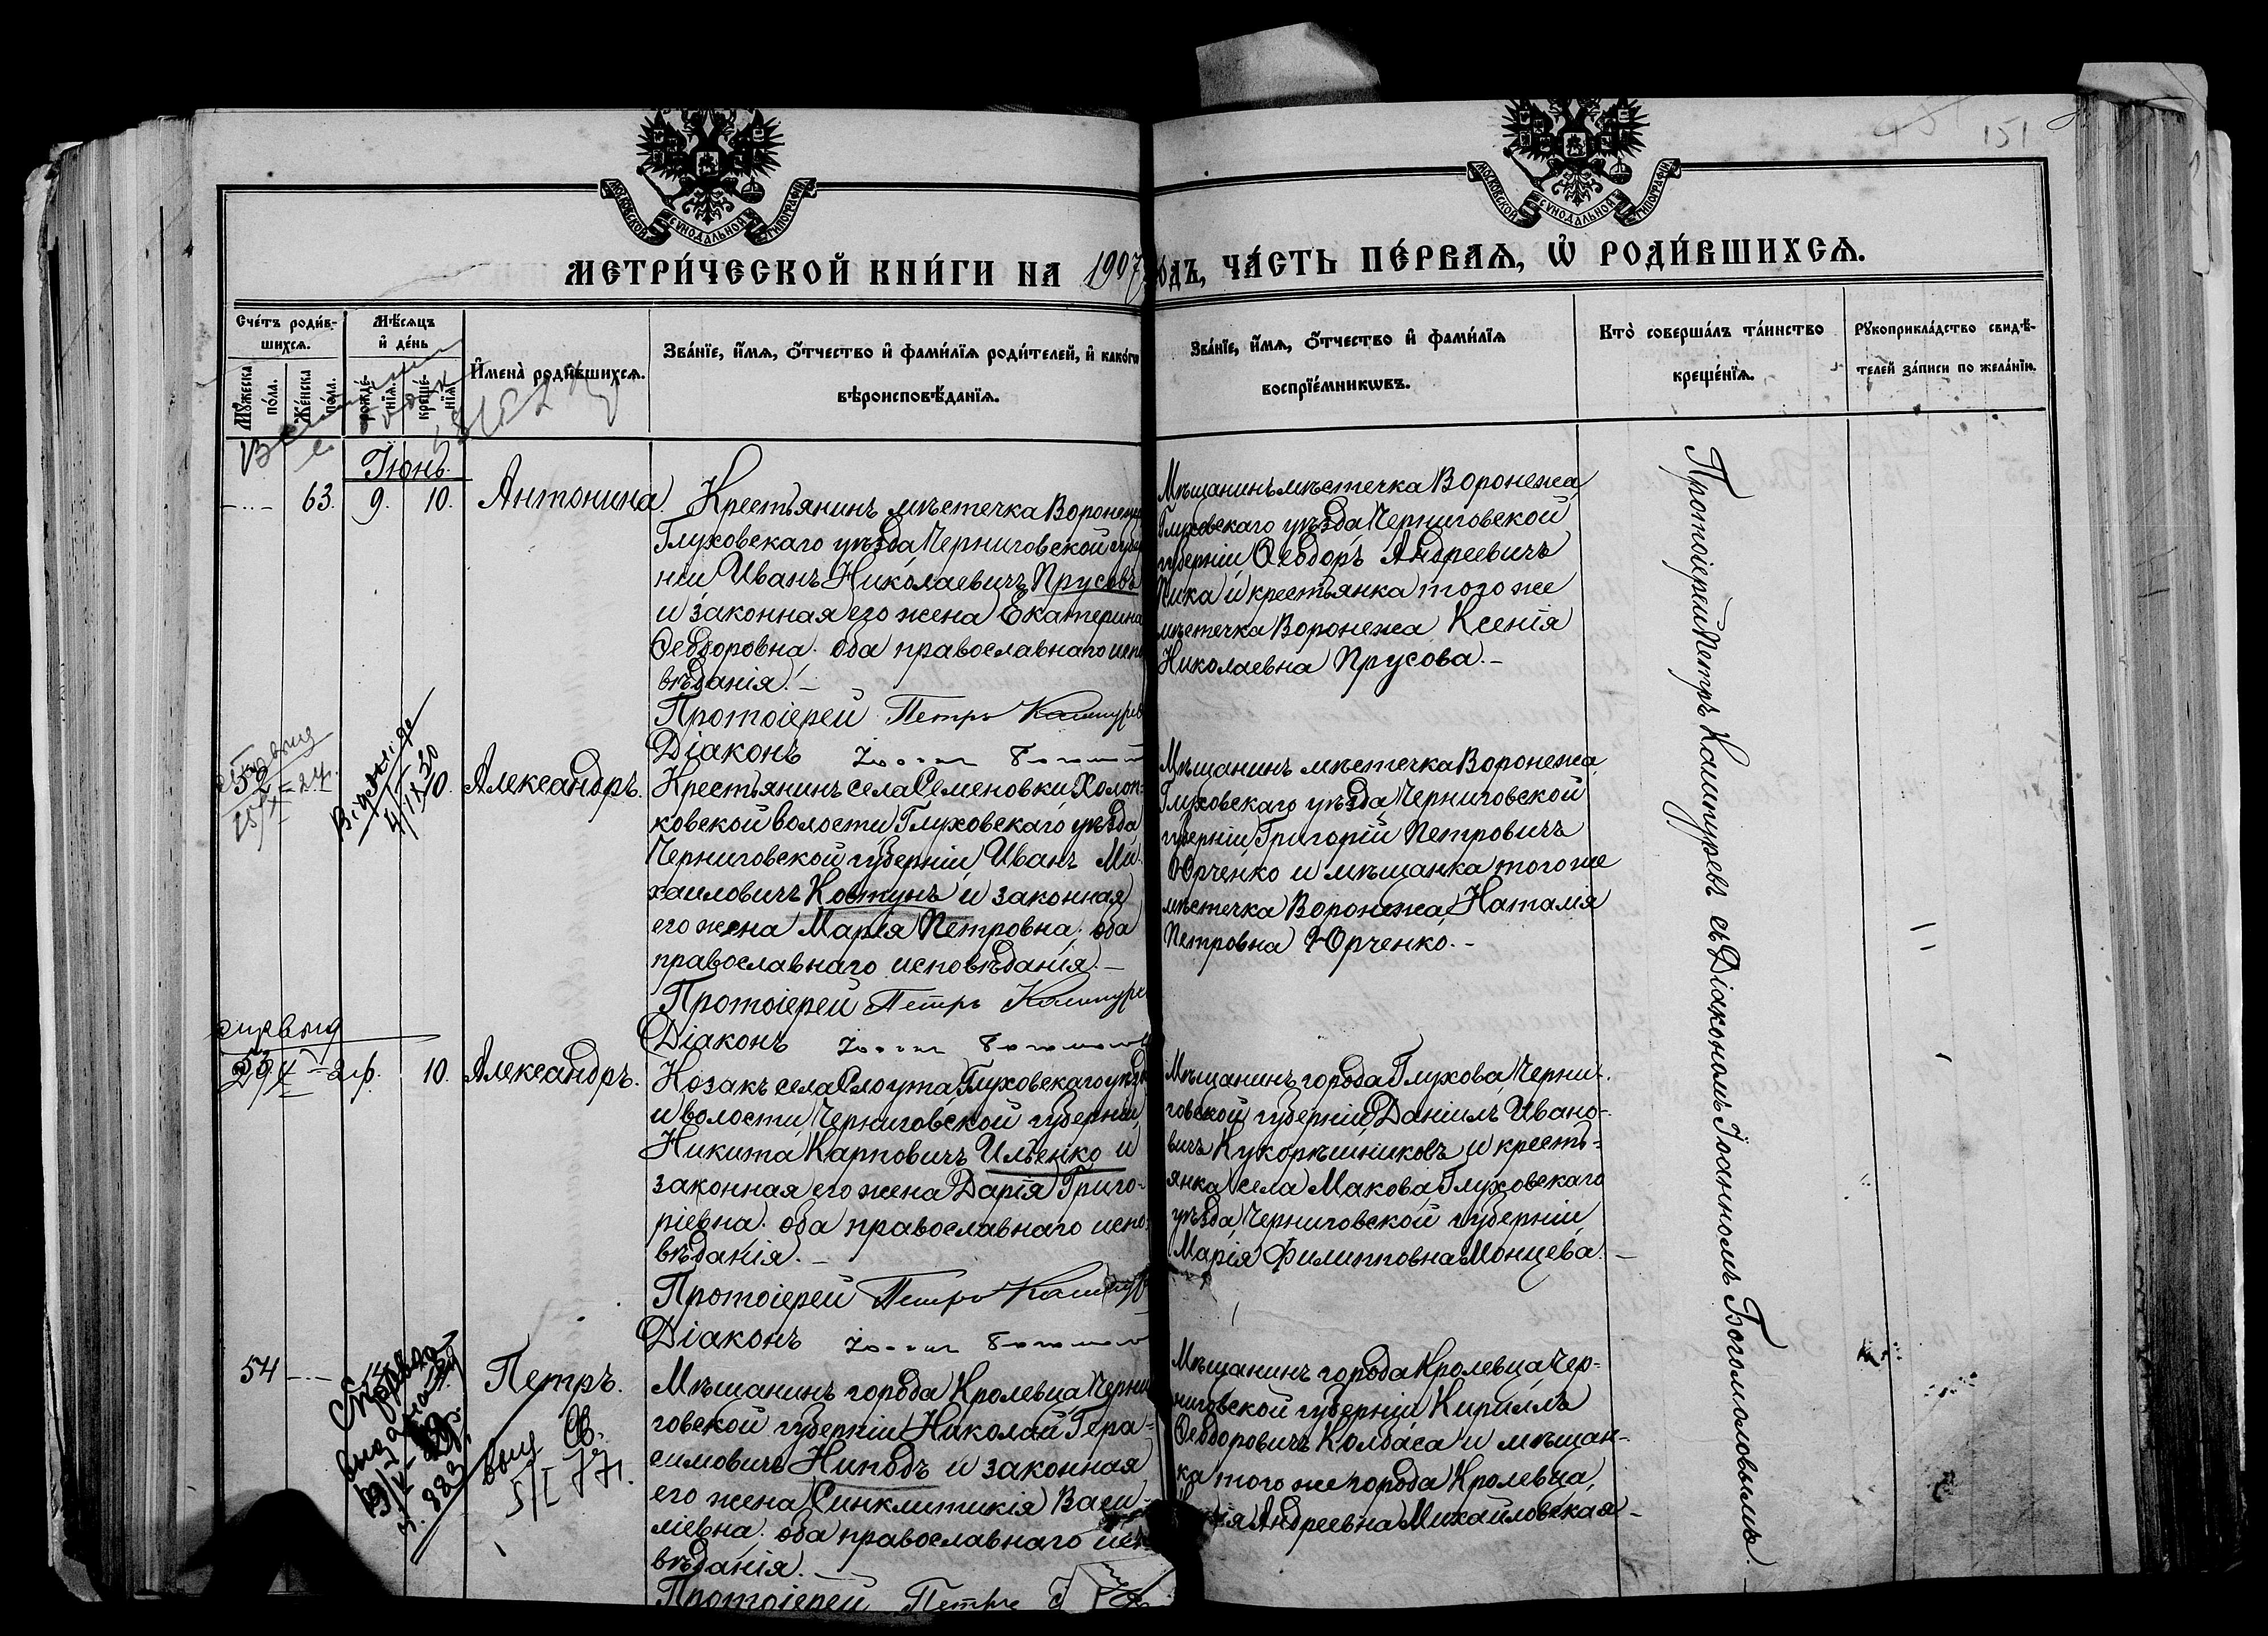 151
МОСКОВСКОЙ СѴНОДАЛЬНОЙ ТИПОГРАФІИ
МОСКОВСКОЙ СѴНОДАЛЬНОЙ ТИПОГРАФІИ
МЕТРИ́ЧЕСКОЙ КНИ́ГИ НА 1907 ОДЪ, ЧА́СТЬ ПЕ́РВАѦ, Ѡ҆ РОДИ́ВШИХСѦ.
Сче́тъ роди́в-
шихсѧ.
Мꙋ́жеска по́ла.
Же́нска по́ла.
Мѣ́сѧцъ
и҆ де́нь
рожде́-
нїѧ.
креще́-
нїѧ.
И҆мена̀ роди́вшихсѧ.
Зва́нїе, и҆́мѧ, ѻ҆́тчество и҆ фами́лїѧ роди́телей, и҆ како́гѡ
вѣроисповѣ́данїѧ.
Зва́нїе, и҆́мѧ, ѻ҆́тчество и҆ фами́лїѧ
воспрїе́мникѡвъ.
Кто̀ соверша́лъ та́инство
креще́нїѧ.
Рꙋкоприкла́дство свидѣ́-
телей за́писи по жела́нїю.
Іюнь.
63. 9. 10. Антонина.
Крестьянинъ мѣстечка Воронежа
Глуховскаго уѣзда Черниговской губер
ніи Иванъ Николаевичъ Прусовъ
и законная его жена Екатерина
Ѳеодоровна. оба православнаго испо
вѣданія. –
Протоіерей Петръ Каштуревъ
Діаконъ
Мѣщанинъ мѣстечка Воронежа
Глуховскаго уѣзда Черниговской
губерніи Ѳеодоръ Андреевичъ
Пика и крестьянка того же
мѣстечка Воронежа Ксенія
Николаевна Прусова. –
10. Александръ.
Крестьянинъ села Семеновки Холоп-
ковской волости Глуховскаго уѣзда
Черниговской губерніи Иванъ Ми-
хаиловичъ Ковтунъ и законная
его жена Марія Петровна. оба
православнаго исповѣданія. –
Протоіерей Петръ
Діаконъ
Мѣщанинъ мѣстечка Воронежа
Глуховскаго уѣзда Черниговской
губерніи Григорій Петровичъ
Юрченко и мѣщанка того же
мѣстечка Воронежа Наталія
Петровна Юрченко. –
53. 10. Александръ.
Козакъ села Слоута Глуховскаго уѣзда
и волости Черниговской губерніи
Никита Карповичъ Ильенко и
законная его жена Дарія Григо-
ріевна. оба православнаго испо
вѣданія. –
Протоіерей Петръ
Діаконъ
Мѣщанинъ города Глухова Черни-
говской губерніи Даніилъ Ивано-
вичъ Кукорѣшниковъ и кресть-
янка села Макова Глуховскаго
уѣзда Черниговской губерніи
Марія Филипповна Монцева. –
54 Петръ.
Мѣщанинъ города Кролевца Черни
говской губерніи Николай Гера-
симовичъ Ниподъ и законная
его жена Синклитикія Васи-
ліевна. оба православнаго испо
вѣданія. –
Протоіерей Петръ
Мѣщанинъ города Кролевца Чер-
ниговской губерніи Кириллъ
Ѳеодоровичъ Колбаса и мѣщан-
ка того же города Кролевца,
Андреевна Михайловская –
Протоіерей Петръ Каштуревъ съ Діакономъ Іоанномъ Богомоловымъ.